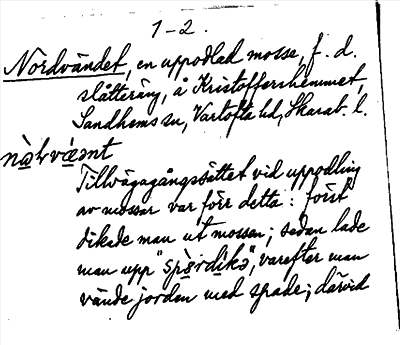 1-2.
Nordvändet, en uppodlad mosse, f. d.
slåtteräng, å Kristoffershemmet,
Sandhems sn, Vartofta hd, Skarab. l.
Tillvägagångssättet vid uppodling
av mossar var förr detta: först
dikade man ut mossen; sedan lade
man upp "spə̀rdikə", varefter man
vände jorden med spade; därvid